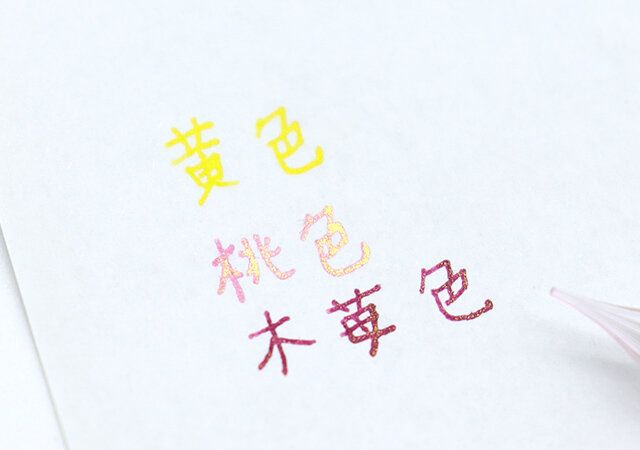 黄色
桃色
木苺色